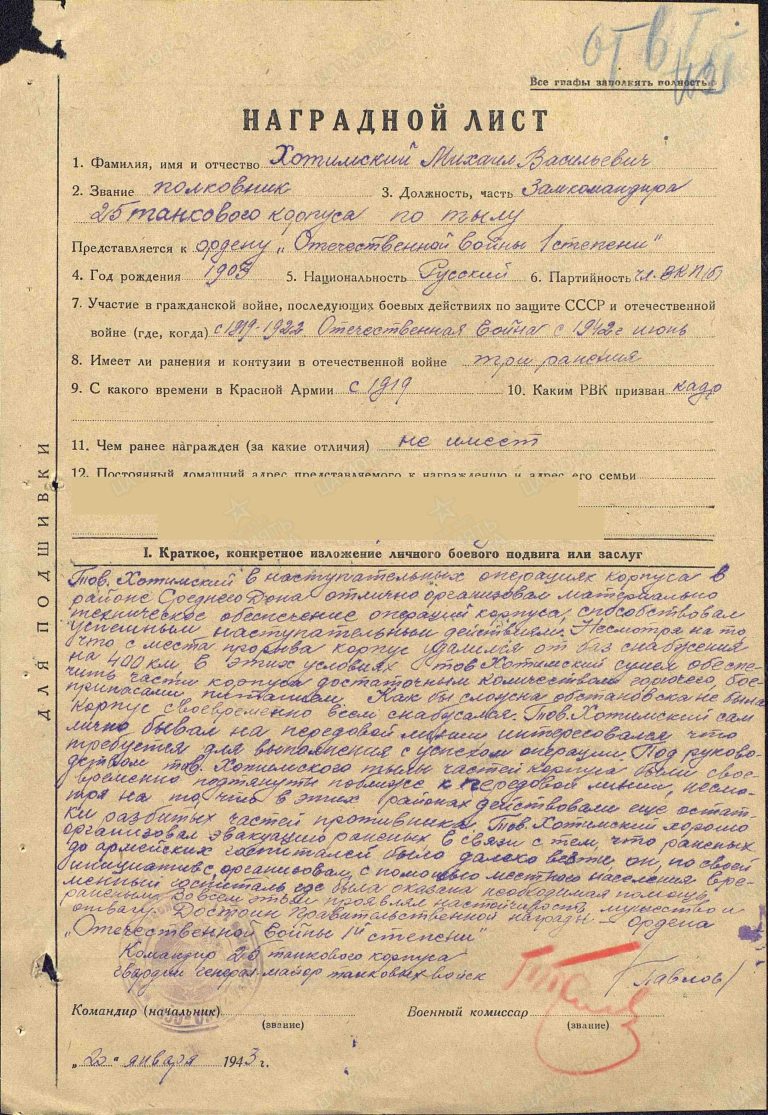 Все графы заполнять полностью
НАГРАДНОЙ ЛИСТ
1. Фамилия, имя и отчество Хотимский Михаил Васильевич
2. Звание полковник 3. Должность, часть Замкомандира
25 танкового корпуса по тылу
Представляется к ордену „Отечественной войны 1 степени"
4. Год рождения 1903 5. Национальность Русский 6. Партийность чл. ВКП(б)
7. Участие в гражданской войне, последующих боевых действиях по защите СССР и отечественной
войне (где, когда) с 1919-1922 Отечественная война с 1942 г июнь
8. Имеет ли ранения и контузии в отечественной войне три ранения
9. С какого времени в Красной Армии с 1919 10. Каким РВК призван кадр
11. Чем ранее награжден (за какие отличия) не имеет
12. Постоянный домашний адрес представляемого к награждению и адрес его семьи
ДЛЯ ПОДШИВКИ
I. Краткое, конкретное изложение личного боевого подвига или заслуг
Тов. Хотимский в наступательных операциях корпуса в
районе Среднего Дона отлично организовал материально
техническое обеспечение операций корпуса, способствовал
успешным наступательным действиям. Несмотря на то,
что с места прорыва корпус удалился от баз снабжения
на 400 км в этих условиях тов Хотимский сумел обеспе-
чить части корпуса достаточным количеством горючего, бое-
припасами питанием. Как бы сложна обстановка не была
корпус своевременно всем снабжался. Тов. Хотимский сам
лично бывал на передовой линии интересовался что
требуется для выполнения с успехом операции. Под руково-
дством тов. Хотимского тылы частей корпуса были свое-
временно подтянуты поближе к передовой линии, несмо-
тря на то что в этих районах действовали еще остат-
ки разбитых частей противника. Тов. Хотимский хорошо
организовал эвакуацию раненых в связи с тем, что раненых
до армейских госпиталей было далеко везти он, по своей
инициативе, организовал, с помощью местного населения вре-
менный госпиталь где была оказана необходимая помощь
раненым. Во всем этом проявлял настойчивость мужество и
отвагу. Достоин правительственной награды - ордена
„Отечественной войны 1й степени"
Командир 25 танкового корпуса
гвардии генерал-майор танковых войск /Павлов/
Командир (начальник) Военный комиссар
(звание) (звание)
„20" января 1943 г.